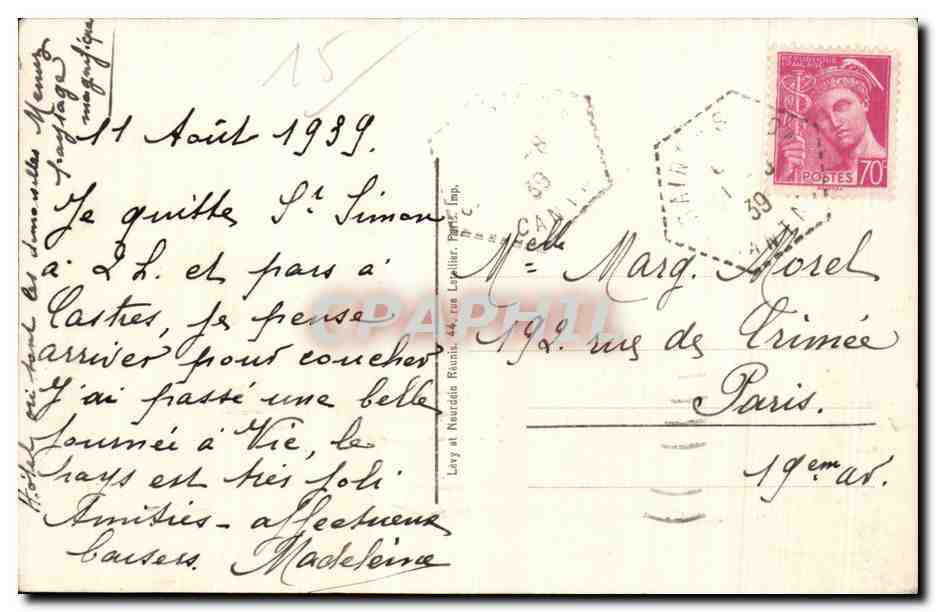 15
11 Août 1939.
Je quitte St Simon
à 2 h. et pars à
Castres, je pense
arriver pour coucher
J'ai passé une belle
journée à Vic, le
pays est très joli
Amitiés - affectueux
baisers. Madeleine
Hôtel où sont les demoiselles
paysage
magnifique
Lévy et Neurdein Réunis, 44, rue Letellier, Paris. Imp.
CPAPHIL
REPUBLIQUE FRANÇAISE
POSTES 70c
39
CANT
39
Melle Marg. Morel
192. rue de Crimée
Paris.
19em ar.